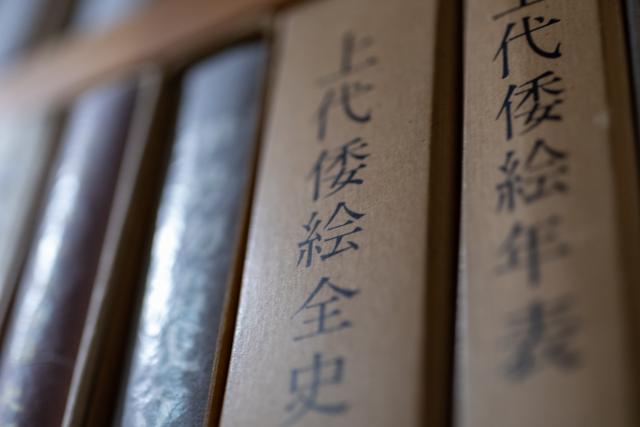 上代倭絵全史
上代倭絵年表